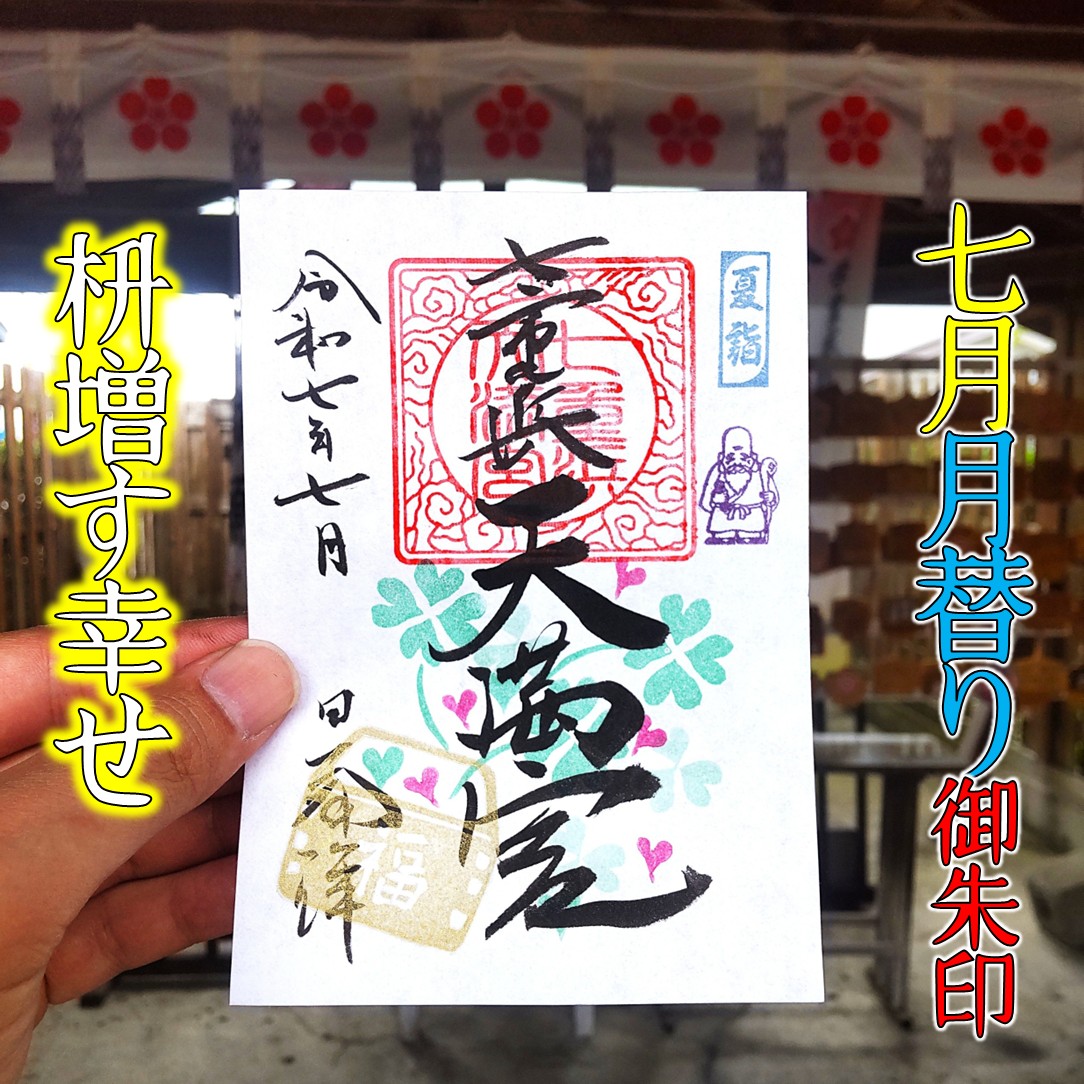 七月月替り御朱印
夏詣
七重浜天満宮
七重浜
天満宮
令和七年七月 日 奉拝
福
枡増す幸せ